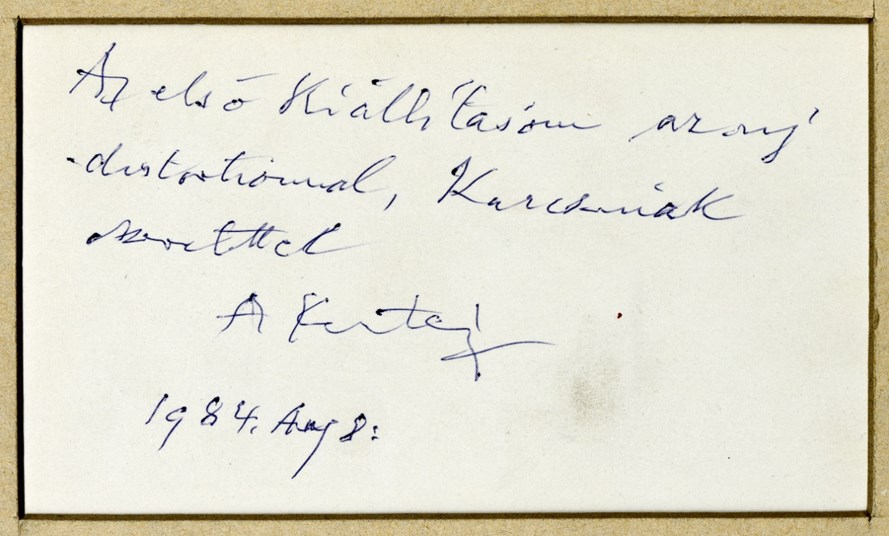 Az első Kiállításom az új
distortionnal, Karcsinak
szeretettel
A Kertész
1984. Aug 8.